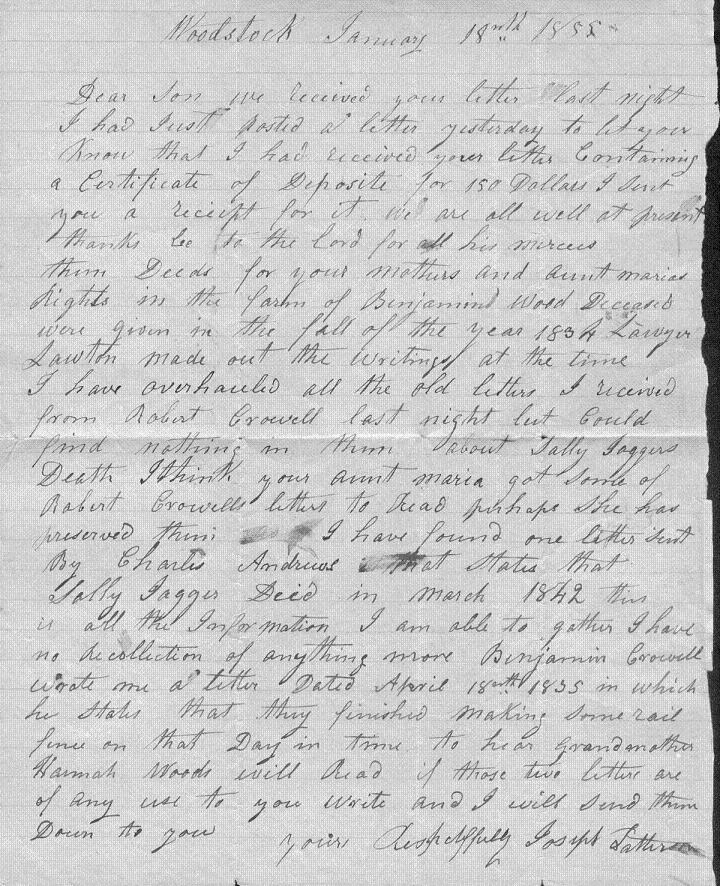 Woodstock January 18nth 1855
Dear Son we received your letter last night
I had Just posted a letter yesterday to let your
Know that I had received your letter Containing
a Certificate of Deposite for 150 Dollars I Sent
you a receipt for it. we are all well at present
thanks be to the Lord for all his mercies
them Deeds for your mothers and aunt marias
Rights in the farm of Benjamin Wood Deceased
were given in the fall of the year 1834 Lawyer
Lawton made out the writings at the time
I have overhauled all the old letters I received
from Robert Crowell last night but Could
find nothing in them about Sally Jaggers
Death I think your aunt maria got Some of
Robert Crowells letters to Read perhaps She has
preserved them I have found one letter Sent
By Charles Andrews that States that
Sally Jagger Deid in march 1842 this
is all the Information I am able to gather I have
no Recollection of anything more Benjamin Crowell
wrote me a letter Dated April 18nth 1835 in which
he States that they finished making Some rail
fence on that Day in time to hear Grandmother
Hannah Woods will Read if those two letters are
of any use to you write and I will Send them
Down to you
your Respectfully Joseph